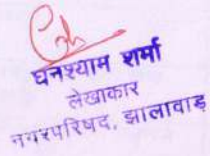 घनश्याम शर्मा
लेखाकार
नगरपरिषद, झालावाड़